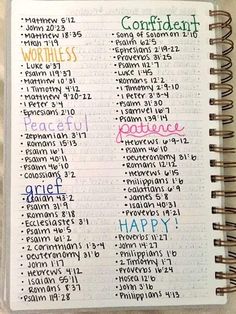 • Matthew 5:12
• John 20:23
• Matthew 18:35
• Micah 7:19
WORTHLESS
• Luke 6:37
• Psalm 119:37
• Matthew 10:31
• 1 Timothy 4:12
• Matthew 9:20-22
• 1 Peter 3:4
• Ephesians 2:10
Peaceful
• Zephaniah 3:17
• Romans 15:13
• Psalm 16:1
• Psalm 40:1
• Psalm 46:10
• Colossians 3:2
grief
• Isaiah 43:2
• Psalm 31:9
• Romans 8:18
• Ecclesiastes 3:1
• Psalm 46:1
• Psalm 61:2
• 2 Corinthians 1:3-4
• deuteronomy 31:6
• John 1:17
• Hebrews 4:12
• Isaiah 55:11
• Romans 8:37
• Psalm 119:28
Confident
• Song of Solomon 2:10
• Psalm 62:5
• Ephesians 2:19-22
• Proverbs 31:25
• Psalm 112:7
• Luke 1:45
• Romans 12:2
• 1 Timothy 2:9-10
• 1 Peter 3:3-4
• Psalm 31:30
• 1 Samuel 16:7
• Psalm 139:14
patience
• Hebrews 6:9-12
• Psalm 46:10
• deuteronomy 31:6
• Romans 12:12
• Philippians 1:6
• Galatians 6:9
• James 5:8
• Isaiah 40:31
• Proverbs 19:21
HAPPY!
• Proverbs 11:27
• John 14:27
• Philippians 1:6
• 2 Timothy 1:7
• Proverbs 16:24
• Hosea 12:6
• John 3:16
• Philippians 4:13